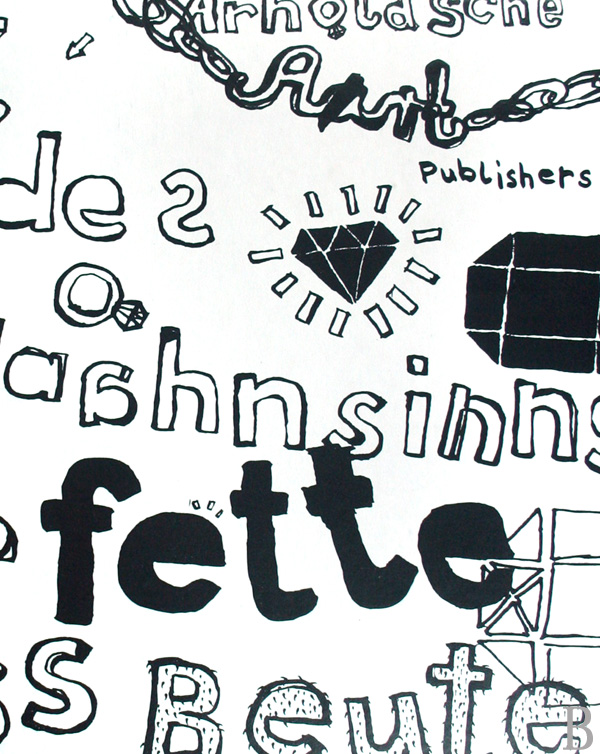 Arnoldsche
Art
Publishers
des
Waahnsinns
fette
Beute
B